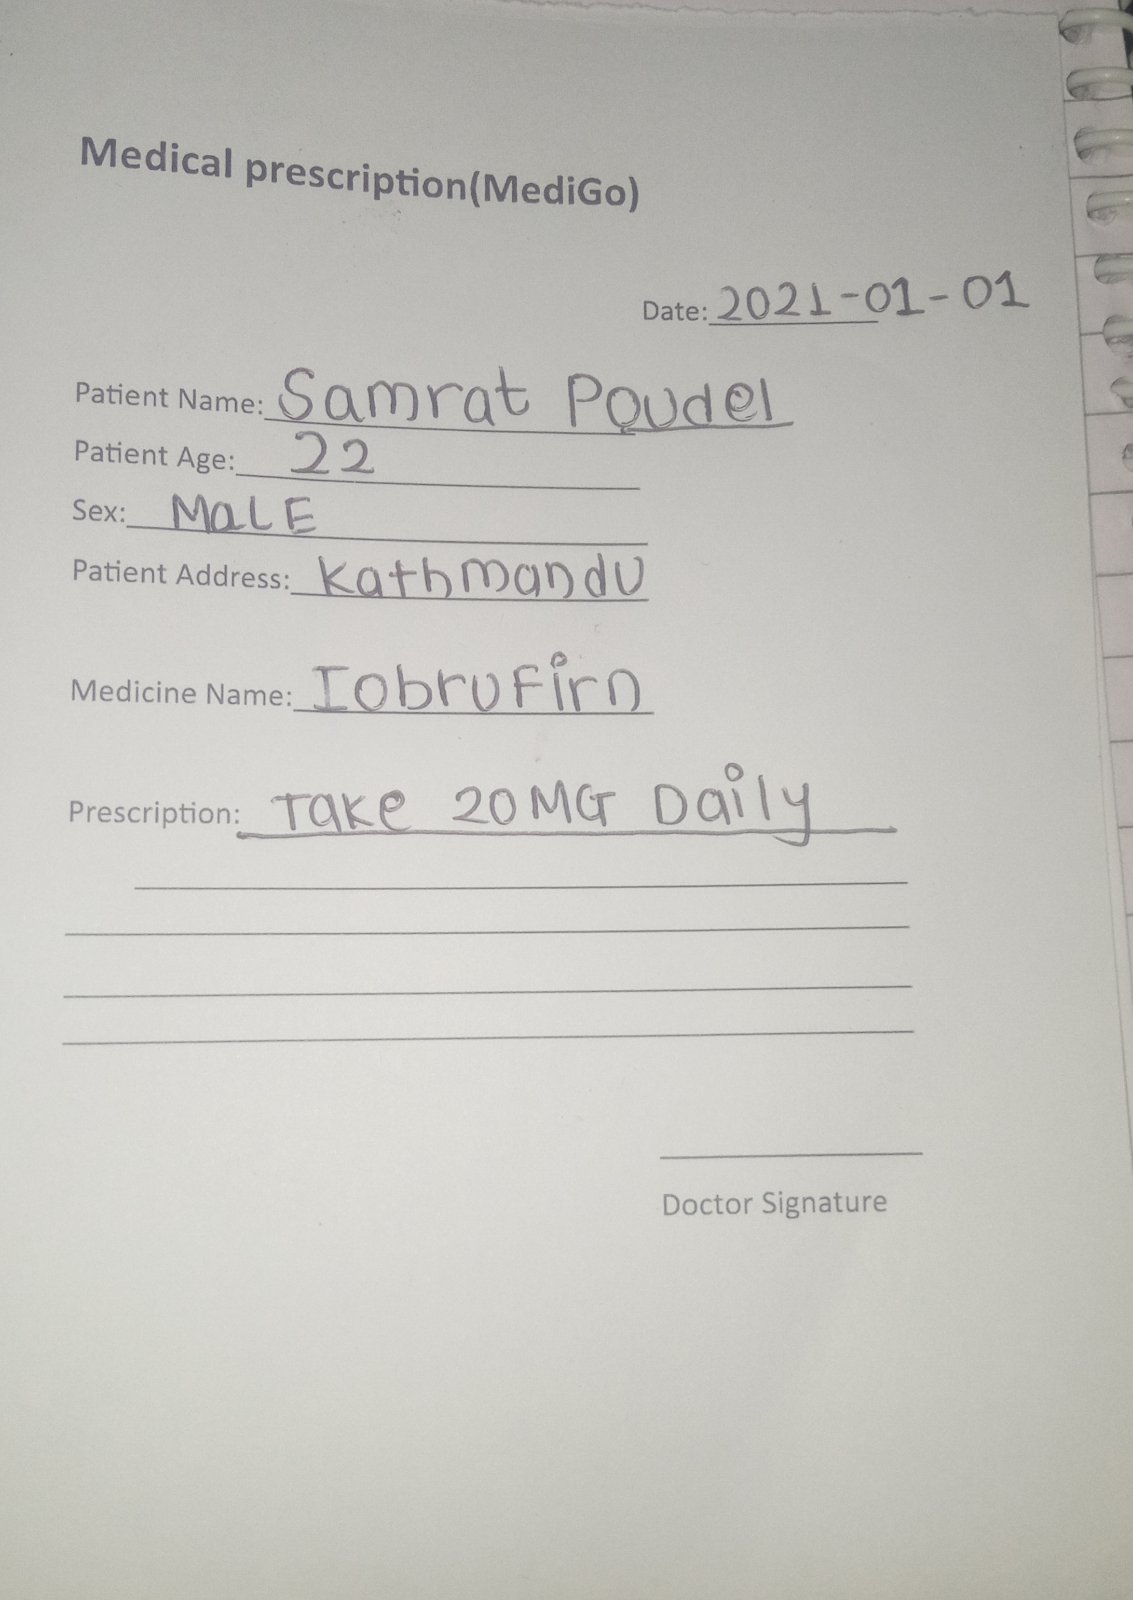 Medical prescription(MediGo)
Date: 2021-01-01
Patient Name: Samrat Poudel
Patient Age: 22
Sex: MaLE
Patient Address: Kathmandu
Medicine Name: Iobrufirn
Prescription: Take 20MG Daily
Doctor Signature